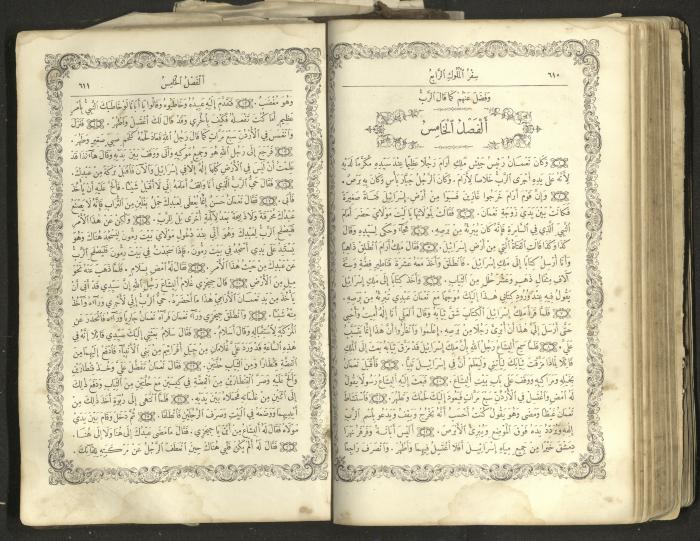 ٦١٠ سفر الملوك الرابع
وفضل عنهم كما قال الرب
الفصل الخامس
وكان نعمان رئيس جيش ملك ارام رجلا عظيما عند سيده مكرما لديه
لأنه على يده أجرى الرب خلاصا لأرام. وكان الرجل جبار بأس وكان به برص.
وإن قوم أرام خرجوا غازين فسبوا من أرض إسرائيل فتاة صغيرة
فكانت بين يدي زوجة نعمان. فقالت لمولاتها يا ليت مولاي حضر أمام
النبي الذي في السامرة فإنه كان يبرئه من برصه. فجاء وحكى لسيده وقال
كذا وكذا قالت الفتاة التي من أرض إسرائيل. فقال ملك أرام انطلق ذاهبا
وأنا أرسل كتابا إلى ملك إسرائيل. فانطلق وأخذ معه عشرة قناطير فضة وستة
آلاف مثقال ذهب وعشر حلل من الثياب. وأخذ كتابا إلى ملك إسرائيل
يقول فيه عند ورود كتابي هذا إليك موجها مع نعمان عبدي تبرئه من برصه.
فلما قرأ ملك إسرائيل الكتاب شق ثيابه وقال ألعلي أنا إله أميت وأحيي
حتى أرسل إلي هذا أن أبرئ رجلا من برصه. إعلموا وانظروا أن هذا إنما يتسبب
علي. فلما سمع أليشاع رجل الله بأن ملك إسرائيل قد مزق ثيابه بعث إلى الملك
قائلا لماذا مزقت ثيابك ليأتني وليعلم أن في إسرائيل نبيا. فأقبل نعمان
بخيله ومراكبه ووقف على باب بيت أليشاع. فبعث إليه أليشاع رسولا يقول
له امض واغتسل في الأردن سبع مرات فيعود إليك لحمك وتطهر. فاستشاط
نعمان غيظا ومضى وهو يقول كنت أحسب أنه يخرج ويقف ويدعو باسم الرب
إلهه ويردد يده فوق الموضع ويبرئ الأبرص. أليس أبانة وفرفر نهرا
دمشق خيرا من جميع مياه إسرائيل أفلا أغتسل فيهما وأطهر. وانصرف راجعا
الفصل الخامس ٦١١
وهو مغضب. فتقدم إليه عبيده وخاطبوه وقالوا يا أبانا لو خاطبك النبي بأمر
عظيم أما كنت تفعله فكيف بالحري وقد قال لك اغتسل واطهر. فنزل
وانغمس في الأردن سبع مرات كما قال رجل الله فعاد لحمه كلحم صبي صغير وطهر.
فرجع إلى رجل الله هو وجميع موكبه وأتى ووقف بين يديه وقال هاءنذا قد
علمت أن ليس في الأرض كلها إله إلا في إسرائيل والآن فاقبل بركة من عبدك.
فقال حي الرب الذي أنا واقف أمامه إني لا أقبل شيئا. فألح عليه أن يأخذ
فأبى. فقال نعمان حسن إنما يعطى لعبدك حمل بغلين من التراب فإنه لا يصنع
عبدك محرقة ولا ذبيحة بعد لآلهة أخرى بل للرب. ولكن عن هذا الأمر
فليصفح الرب لعبدك وهو أني عند دخول مولاي بيت رمون ليسجد هناك وهو
يستند على يدي أسجد في بيت رمون. فإذا سجدت في بيت رمون فليصفح الرب
عن عبدك من حيث هذا الأمر. فقال له امض بسلام. فلما ذهب عنه نحو
ميل من الأرض قال جيحزي غلام أليشاع رجل الله إن سيدي قد أبى أن
يأخذ من يد نعمان الأرامي هذا ما أحضره. حي الرب إني لأجري وراءه وآخذ
منه شيئا. وانطلق جيحزي وراء نعمان فرآه نعمان جاريا وراءه فانحدر عن
المركبة لاستقباله وقال أسلام. فقال سلام بعثني إليك سيدي قائلا إنه في
هذه الساعة قد ورد علي غلامان من جبل أفرائيم من بني الأنبياء فادفع إليهما من
الفضة قنطارا ومن الثياب حلتين. فقال نعمان تفضل علي وخذ قنطارين
وألح عليه وصر القنطارين من الفضة في كيسين مع حلتين من الثياب ودفع ذلك
إلى اثنين من غلمانه فحملاه بين يديه. فلما انتهى إلى ربوة أخذ ذلك من
أيديهما ووضعه في البيت وصرف الرجلين فانطلقا. ثم دخل وقام بين يدي
مولاه فقال له أليشاع من أين يا جيحزي. فقال ما مضى عبدك إلى هنا ولا إلى هنا.
فقال له ألم يكن قلبي هناك حين انعطف الرجل عن مركبته للقائك.